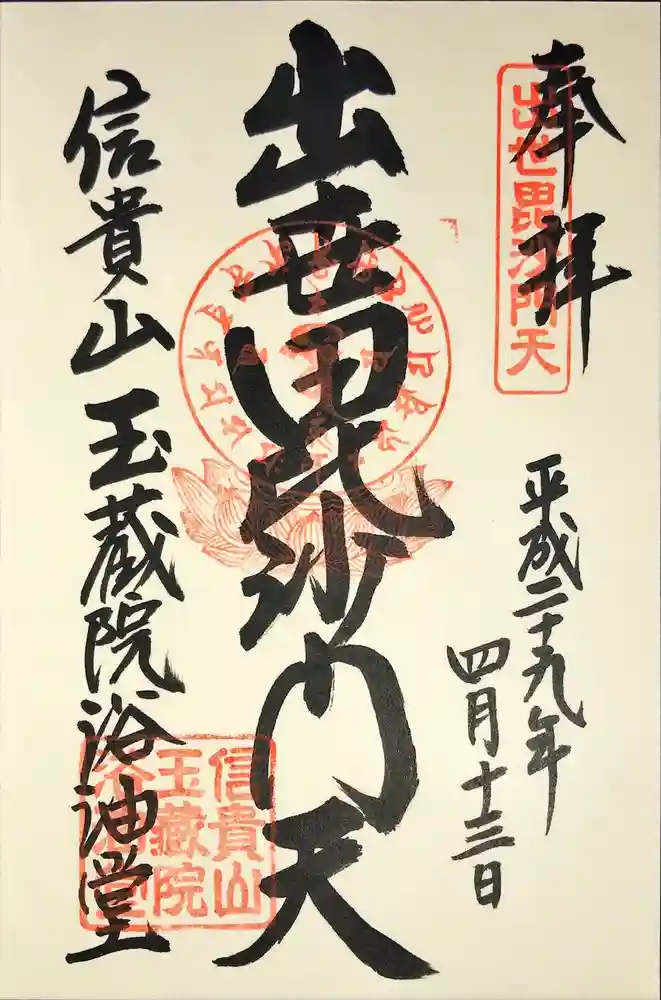 奉拝
出世毘沙門天
平成二十九年
四月十三日
出世毘沙門天
信貴山 玉蔵院浴油堂
信貴山
玉蔵院
浴油堂